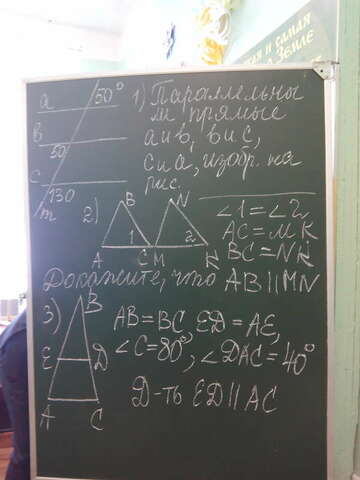 ая и самая
Земле
a 50° 1) Параллельны
ли прямые
b а и в, в и с,
50
с с и а, изобр. на
130 рис.
m
2) B N ∠1=∠2
1 2 AC=MK
A C M K BC=NK
Докажите, что AB||MN
3) B
AB=BC, ED=AE,
E D ∠C=80°, ∠DAC=40°
A C Д-ть ED||AC